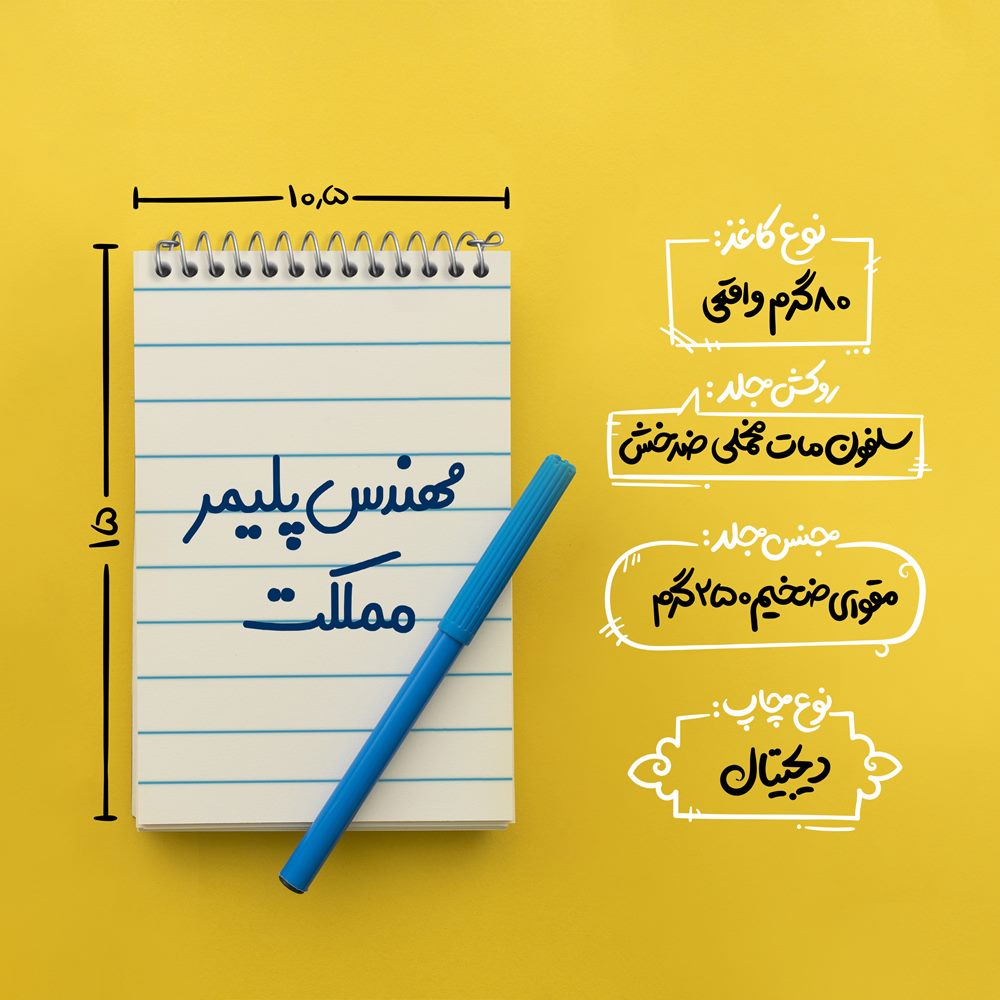 ۱۰٫۵
۱۵
مهندس پلیمر
مملکت
نوع کاغذ:
۸۰گرم واقعی
روکش جلد:
سلفون مات مخملی ضدخش
جنس جلد:
مقوای ضخیم ۲۵۰گرم
نوع چاپ:
دیجیتال